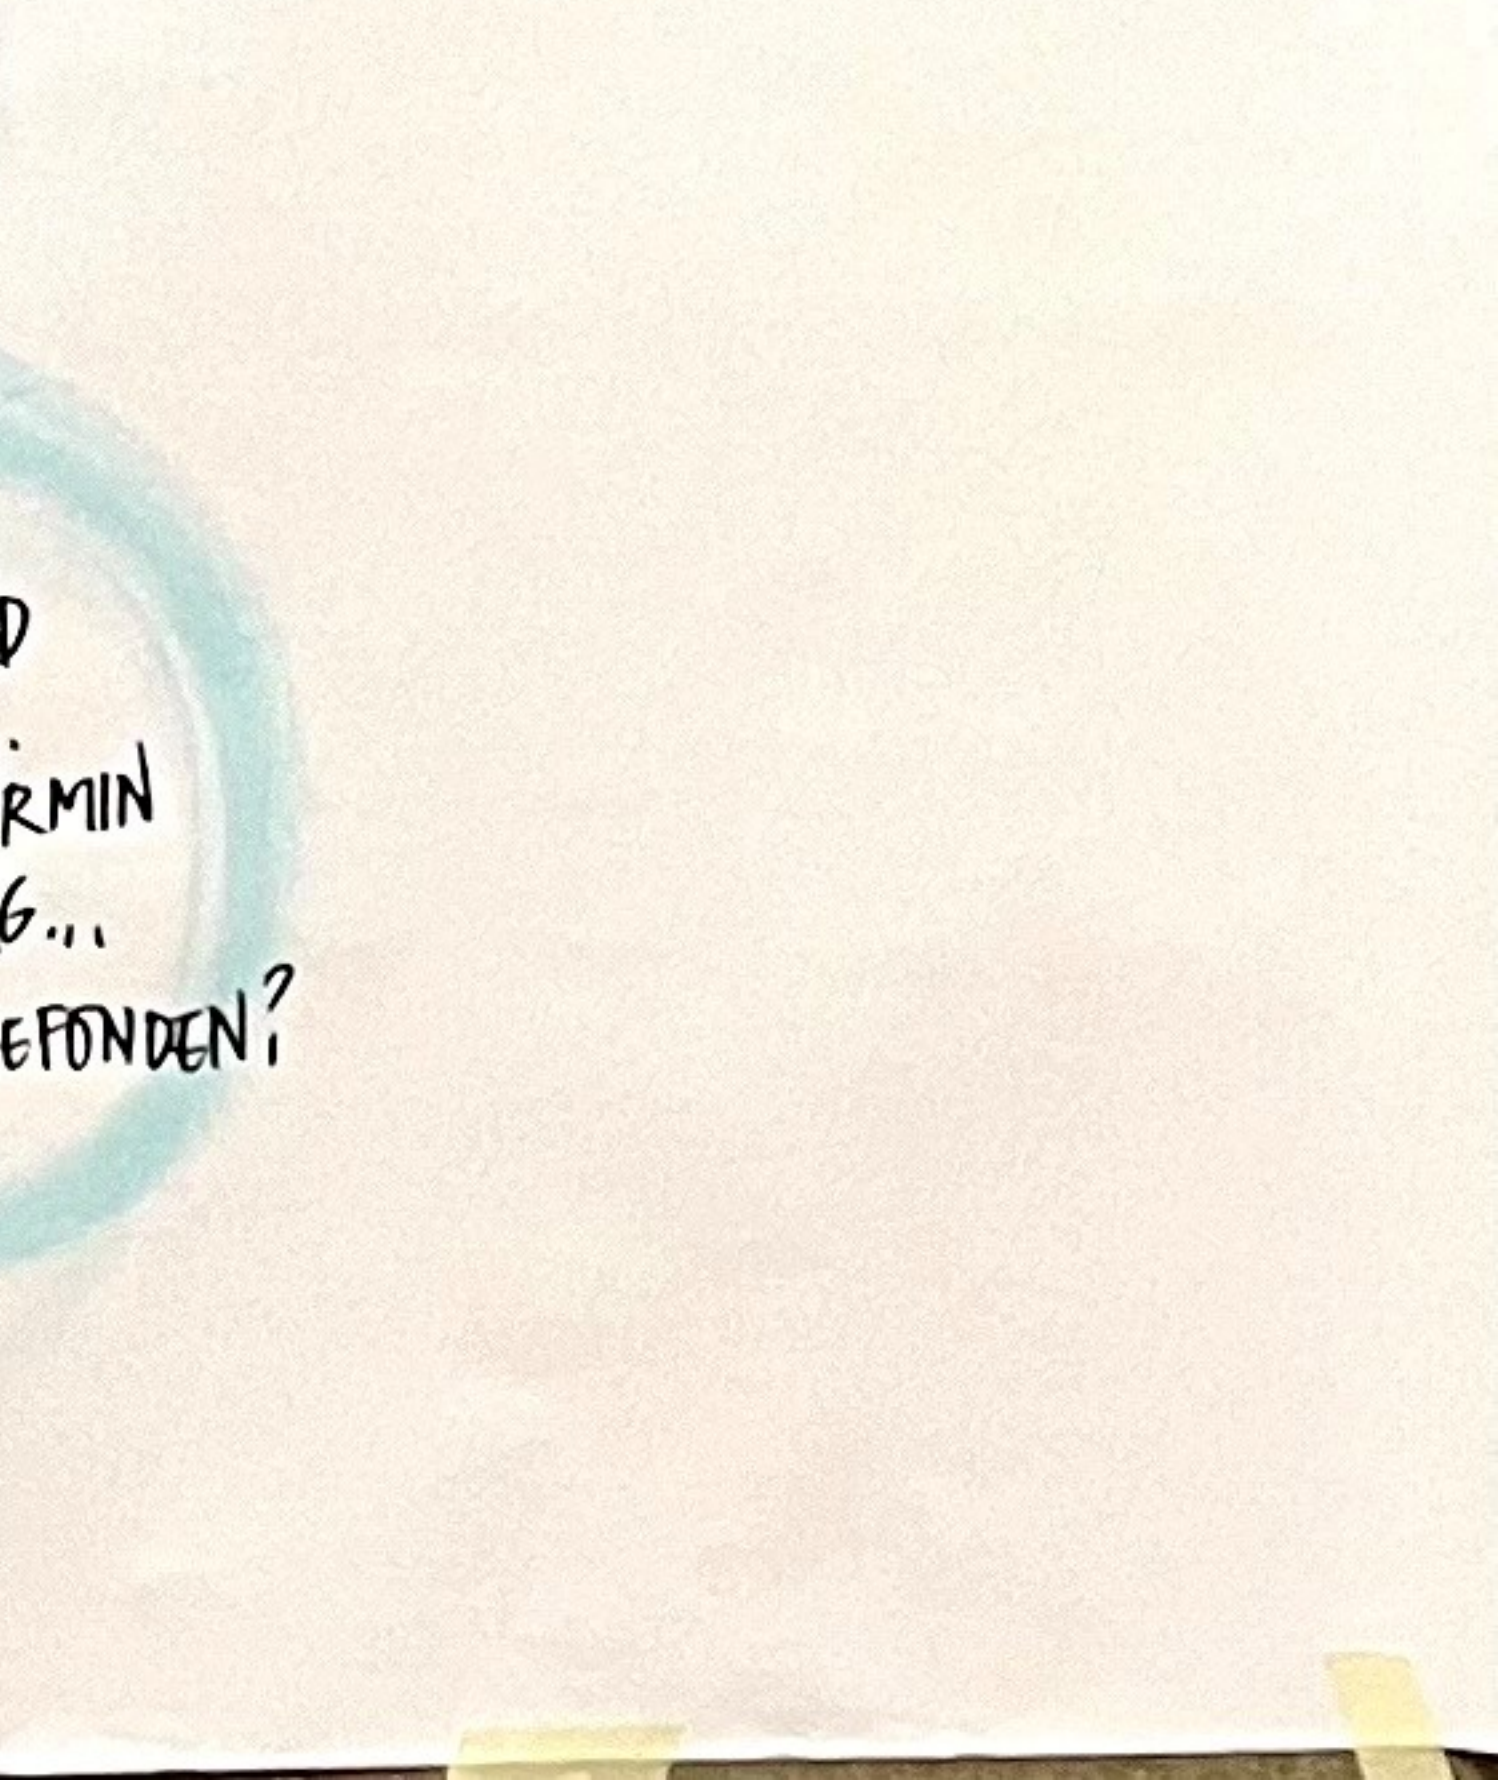 D
RMIN
G...
EFONDEN?